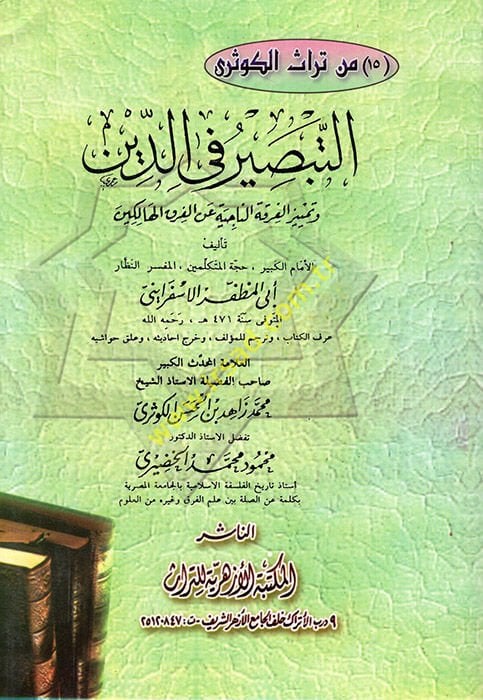 (١٥) من تراث الكوثرى
التبصير في الدين
وتمييز الفرقة الناجية عن الفرق الهالكين
تأليف
الأمام الكبير، حجة المتكلمين، المفسر النظار
أبى المظفر الاسفراينى
المتوفى سنة ٤٧١ هـ، رحمه الله
عرف الكتاب، وترجم للمؤلف، وخرج احاديثه، وعلق حواشيه
العلامة المحدث الكبير
صاحب الفضيلة الاستاذ الشيخ
محمد زاهد بن الحسن الكوثرى
تفضل الاستاذ الدكتور
محمود محمد الخضيرى
أستاذ تاريخ الفلسفة الاسلامية بالجامعة المصرية
بكلمة عن الصلة بين علم الفرق وغيره من العلوم
الناشر
المكتبة الأزهرية للتراث
٩ درب الأتراك خلف الجامع الأزهر الشريف - ت: ٢٥١٢٠٨٤٧